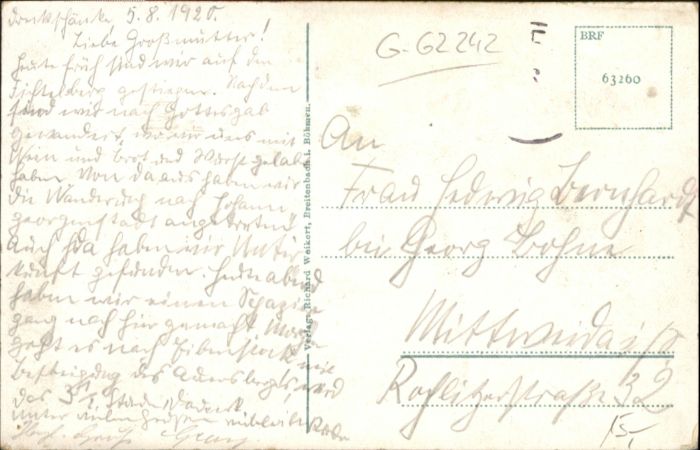 Dreckschänke, 5.8.1920.
Liebe Großmutter!
Heute früh sind wir auf den
Fichtelberg gestiegen. Nachdem
sind wir nach Gottesgab
gewandert, wo wir uns mit
Wein und Brot und Wurst gelabt
haben. Von da aus haben wir
die Wanderung nach Johann-
georgenstadt angetreten
Auch da haben wir Unter-
kunft gefunden. Heute abend
haben wir einen Spazier-
gang nach hier gemacht. Morgen
geht es nach Eibenstock mit
Besteigung des Auersbergs
das
unter vielen Grüßen
Georg
Verlag Richard Weikert, Breitenbach i. Böhmen.
G-G2242
BRF
63260
An
Frau Hedwig Bernhardt
bei Georg Bohne
Mittweida i/S
Rochlitzerstraße 32
15,